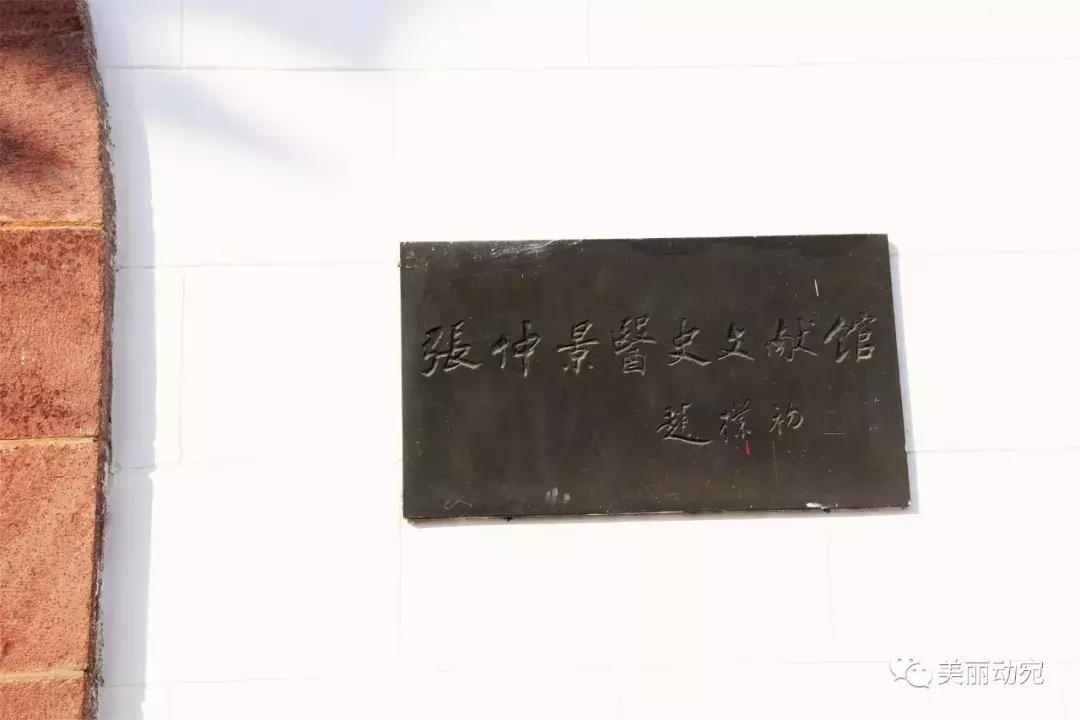 張仲景醫史文献馆
趙樸初
美丽动宛